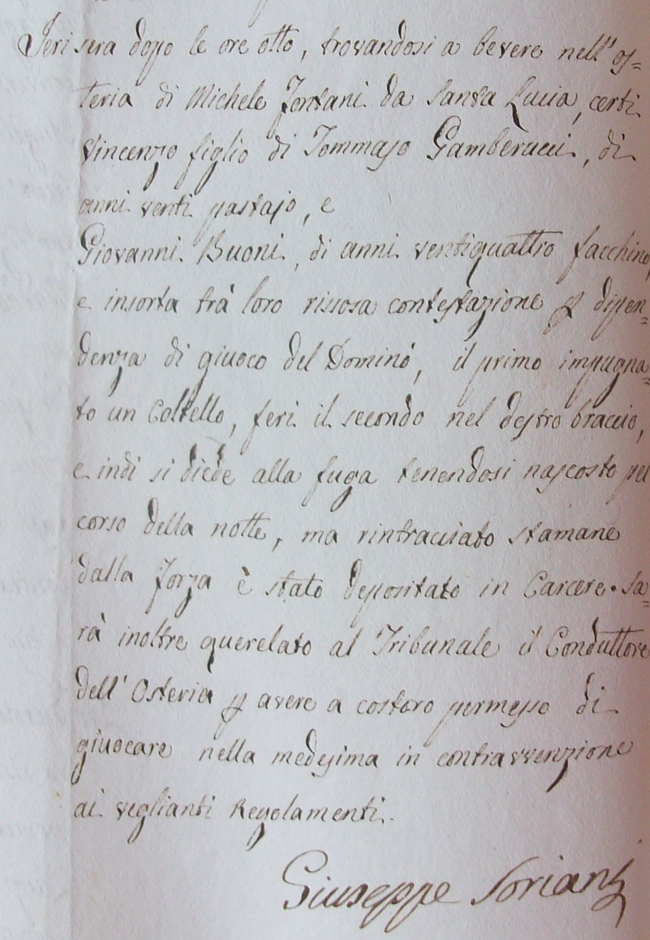 Jeri sera dopo le ore otto, trovandosi a bevere nell'os=
teria di Michele Fontani da Santa Lucia, certi
Vincenzo figlio di Tommaso Gamberucci, di
anni venti pastajo, e
Giovanni Buoni, di anni ventiquattro facchino,
e insorta trà loro rissosa contestazione p dipen=
denza di giuoco del Dominó, il primo impugna=
to un Coltello, ferì il secondo nel destro braccio,
e indi si diede alla fuga tenendosi nascosto pel
corso della notte, ma rintracciato stamane
dalla Forza è stato depositato in Carcere. Sa=
rà inoltre querelato al Tribunale il Conduttore
dell'Osteria p avere a costoro permesso di
giuocare nella medesima in contravvenzione
ai veglianti Regolamenti.
Giuseppe Soriani